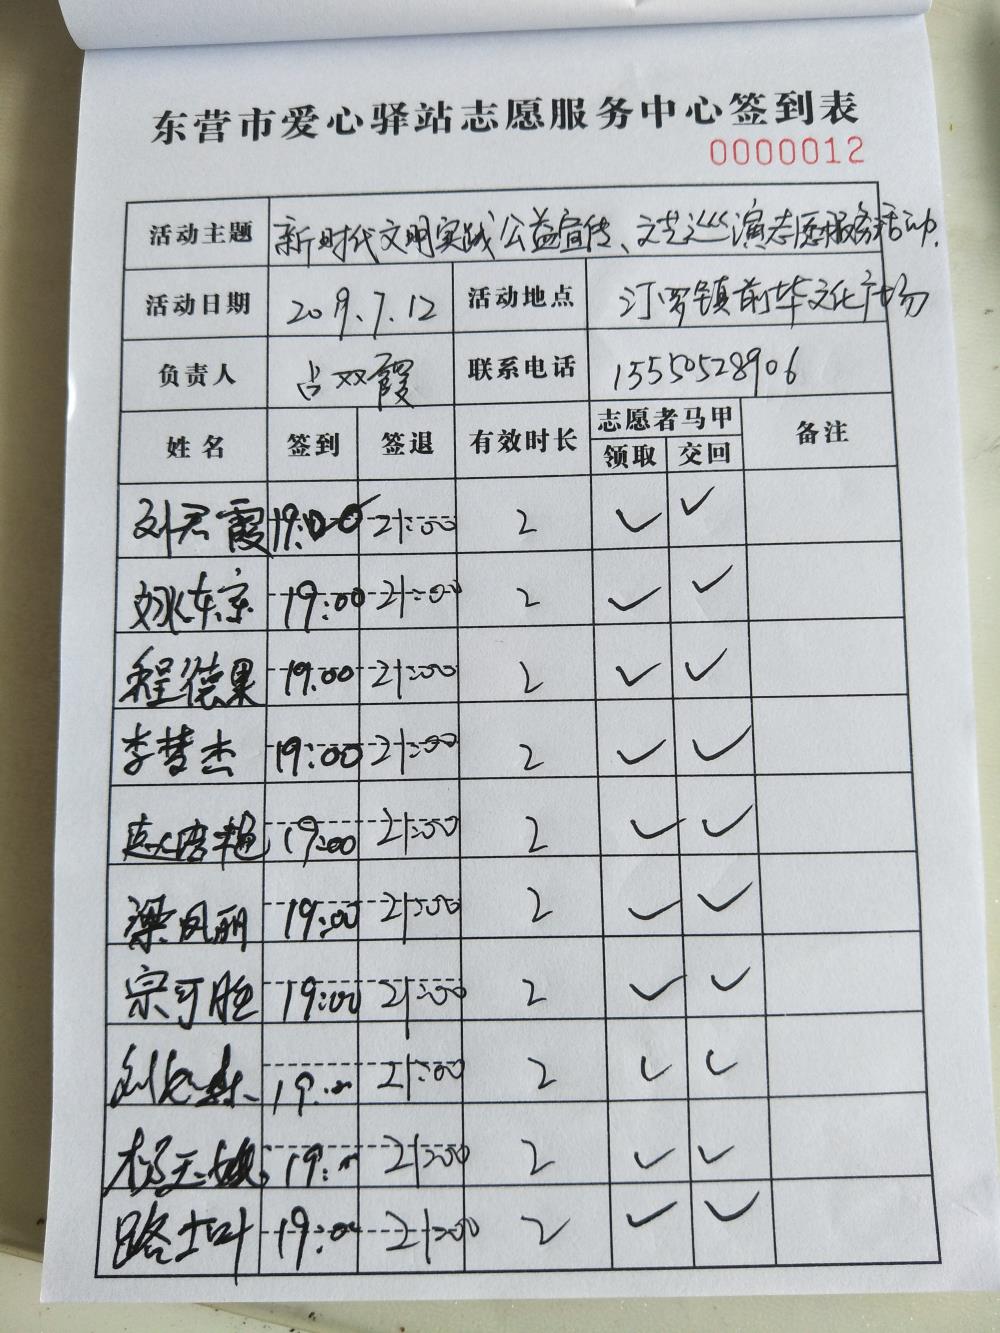 东营市爱心驿站志愿服务中心签到表
0000012
活动主题 新时代文明实践公益宣传、文艺巡演志愿服务活动.
活动日期 2019.7.12 活动地点 汀罗镇前毕文化广场
负责人 占双霞 联系电话 15550528906
姓名 签到 签退 有效时长 志愿者马甲 备注
领取 交回
刘君霞 19:00 21:00 2 ✓ ✓
姚东京 19:00 21:00 2 ✓ ✓
程德果 19:00 21:00 2 ✓ ✓
李梦杰 19:00 21:00 2 ✓ ✓
19:00 21:00 2 ✓ ✓
梁凤丽 19:00 21:00 2 ✓ ✓
宗可胜 19:00 21:00 2 ✓ ✓
19:00 21:00 2 ✓ ✓
杨天敏 19:00 21:00 2 ✓ ✓
路士叶 19:00 21:00 2 ✓ ✓